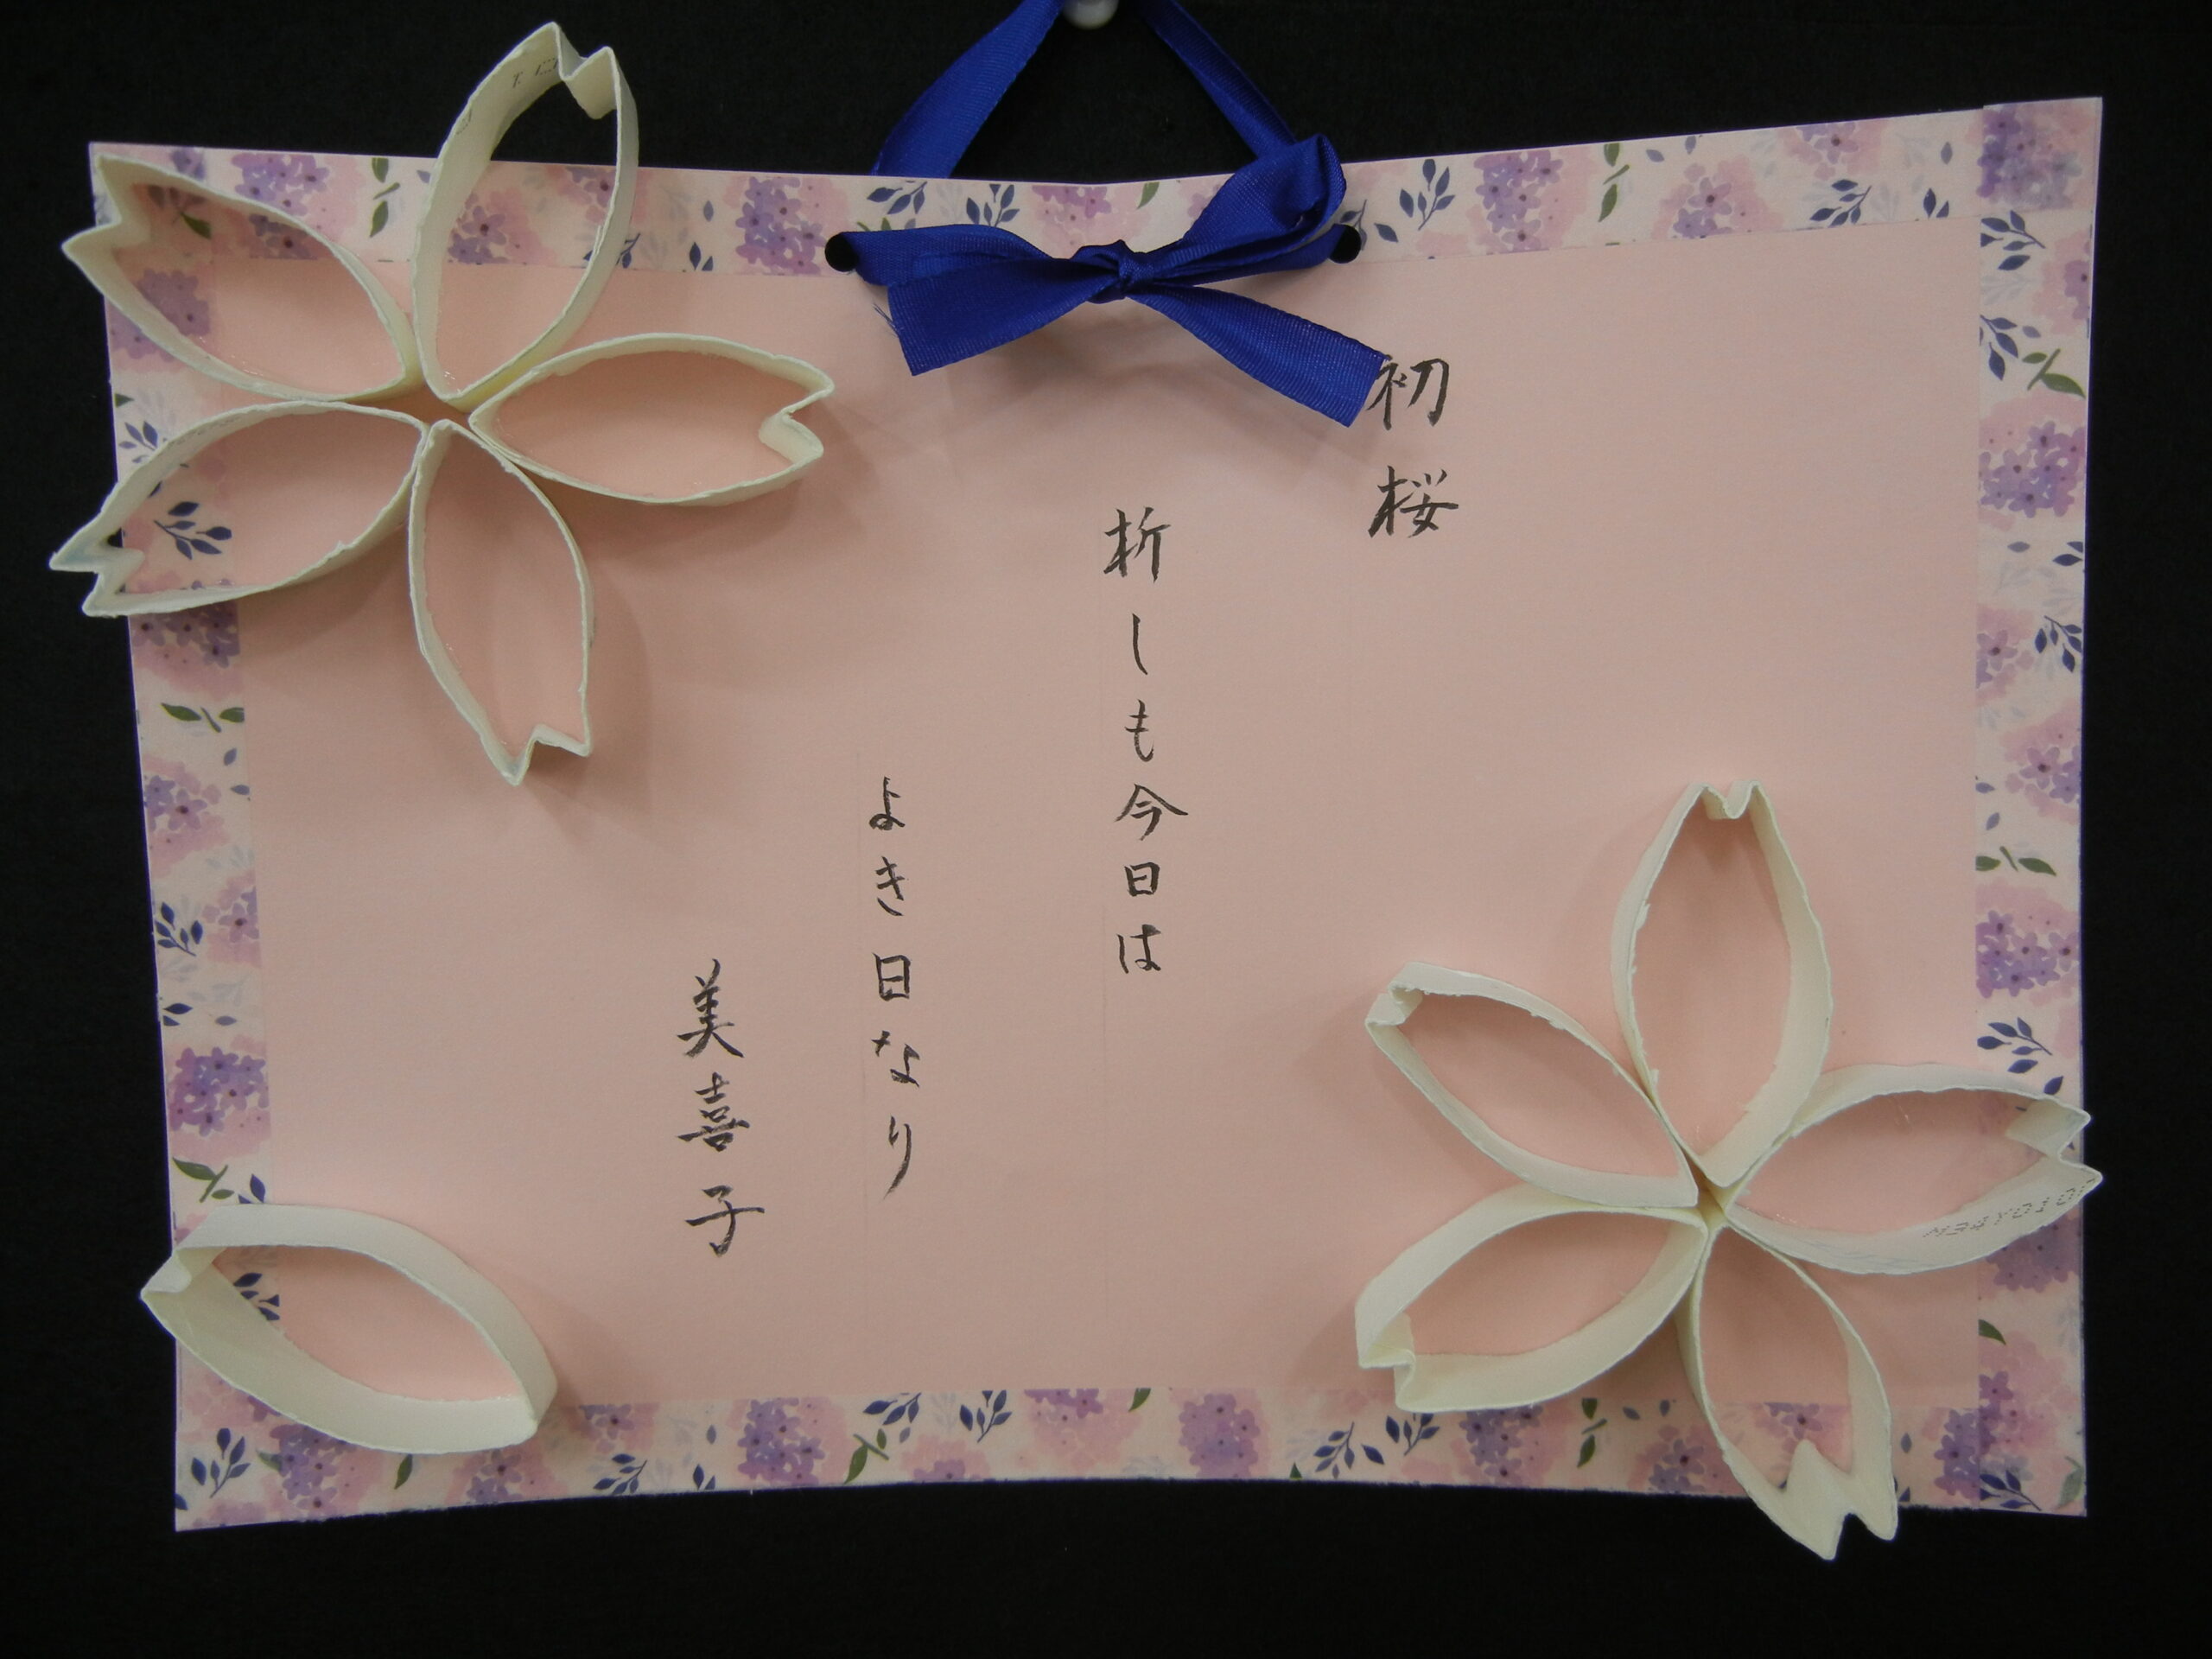 初桜
折しも今日は
よき日なり
美喜子